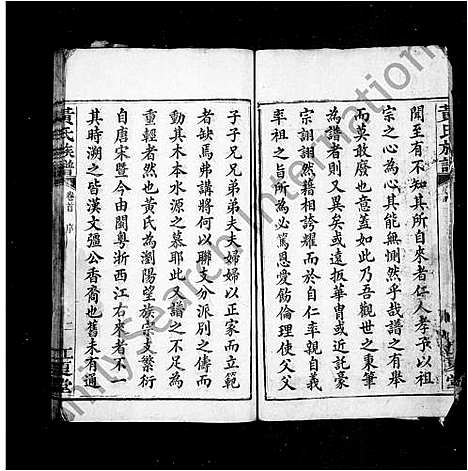 黃氏族譜
聞至有不知其所自來者仁人孝子以祖
宗之心為心其能無惻然乎哉譜之有舉
而莫敢廢也意蓋如此乃吾觀世之秉筆
為譜者則又異矣或遠扳華冑或近託豪
宗詡詡然藉相誇耀而於自仁率親自義
率祖之旨所為必篤恩愛飭倫理使父父
子子兄兄弟弟夫夫婦婦以正家而立範
者缺焉弗講將何以聯支分派別之儔而
動其木本水源之慕耶此又譜之不足為
重輕者然也黃氏為瀏陽望族宗支繁衍
自唐宋暨今由閩粤浙西江右來者不一
其時溯之皆漢文彊公香裔也舊未有通
黃氏族譜
卷首
序
二
江夏堂
FamilySearch International